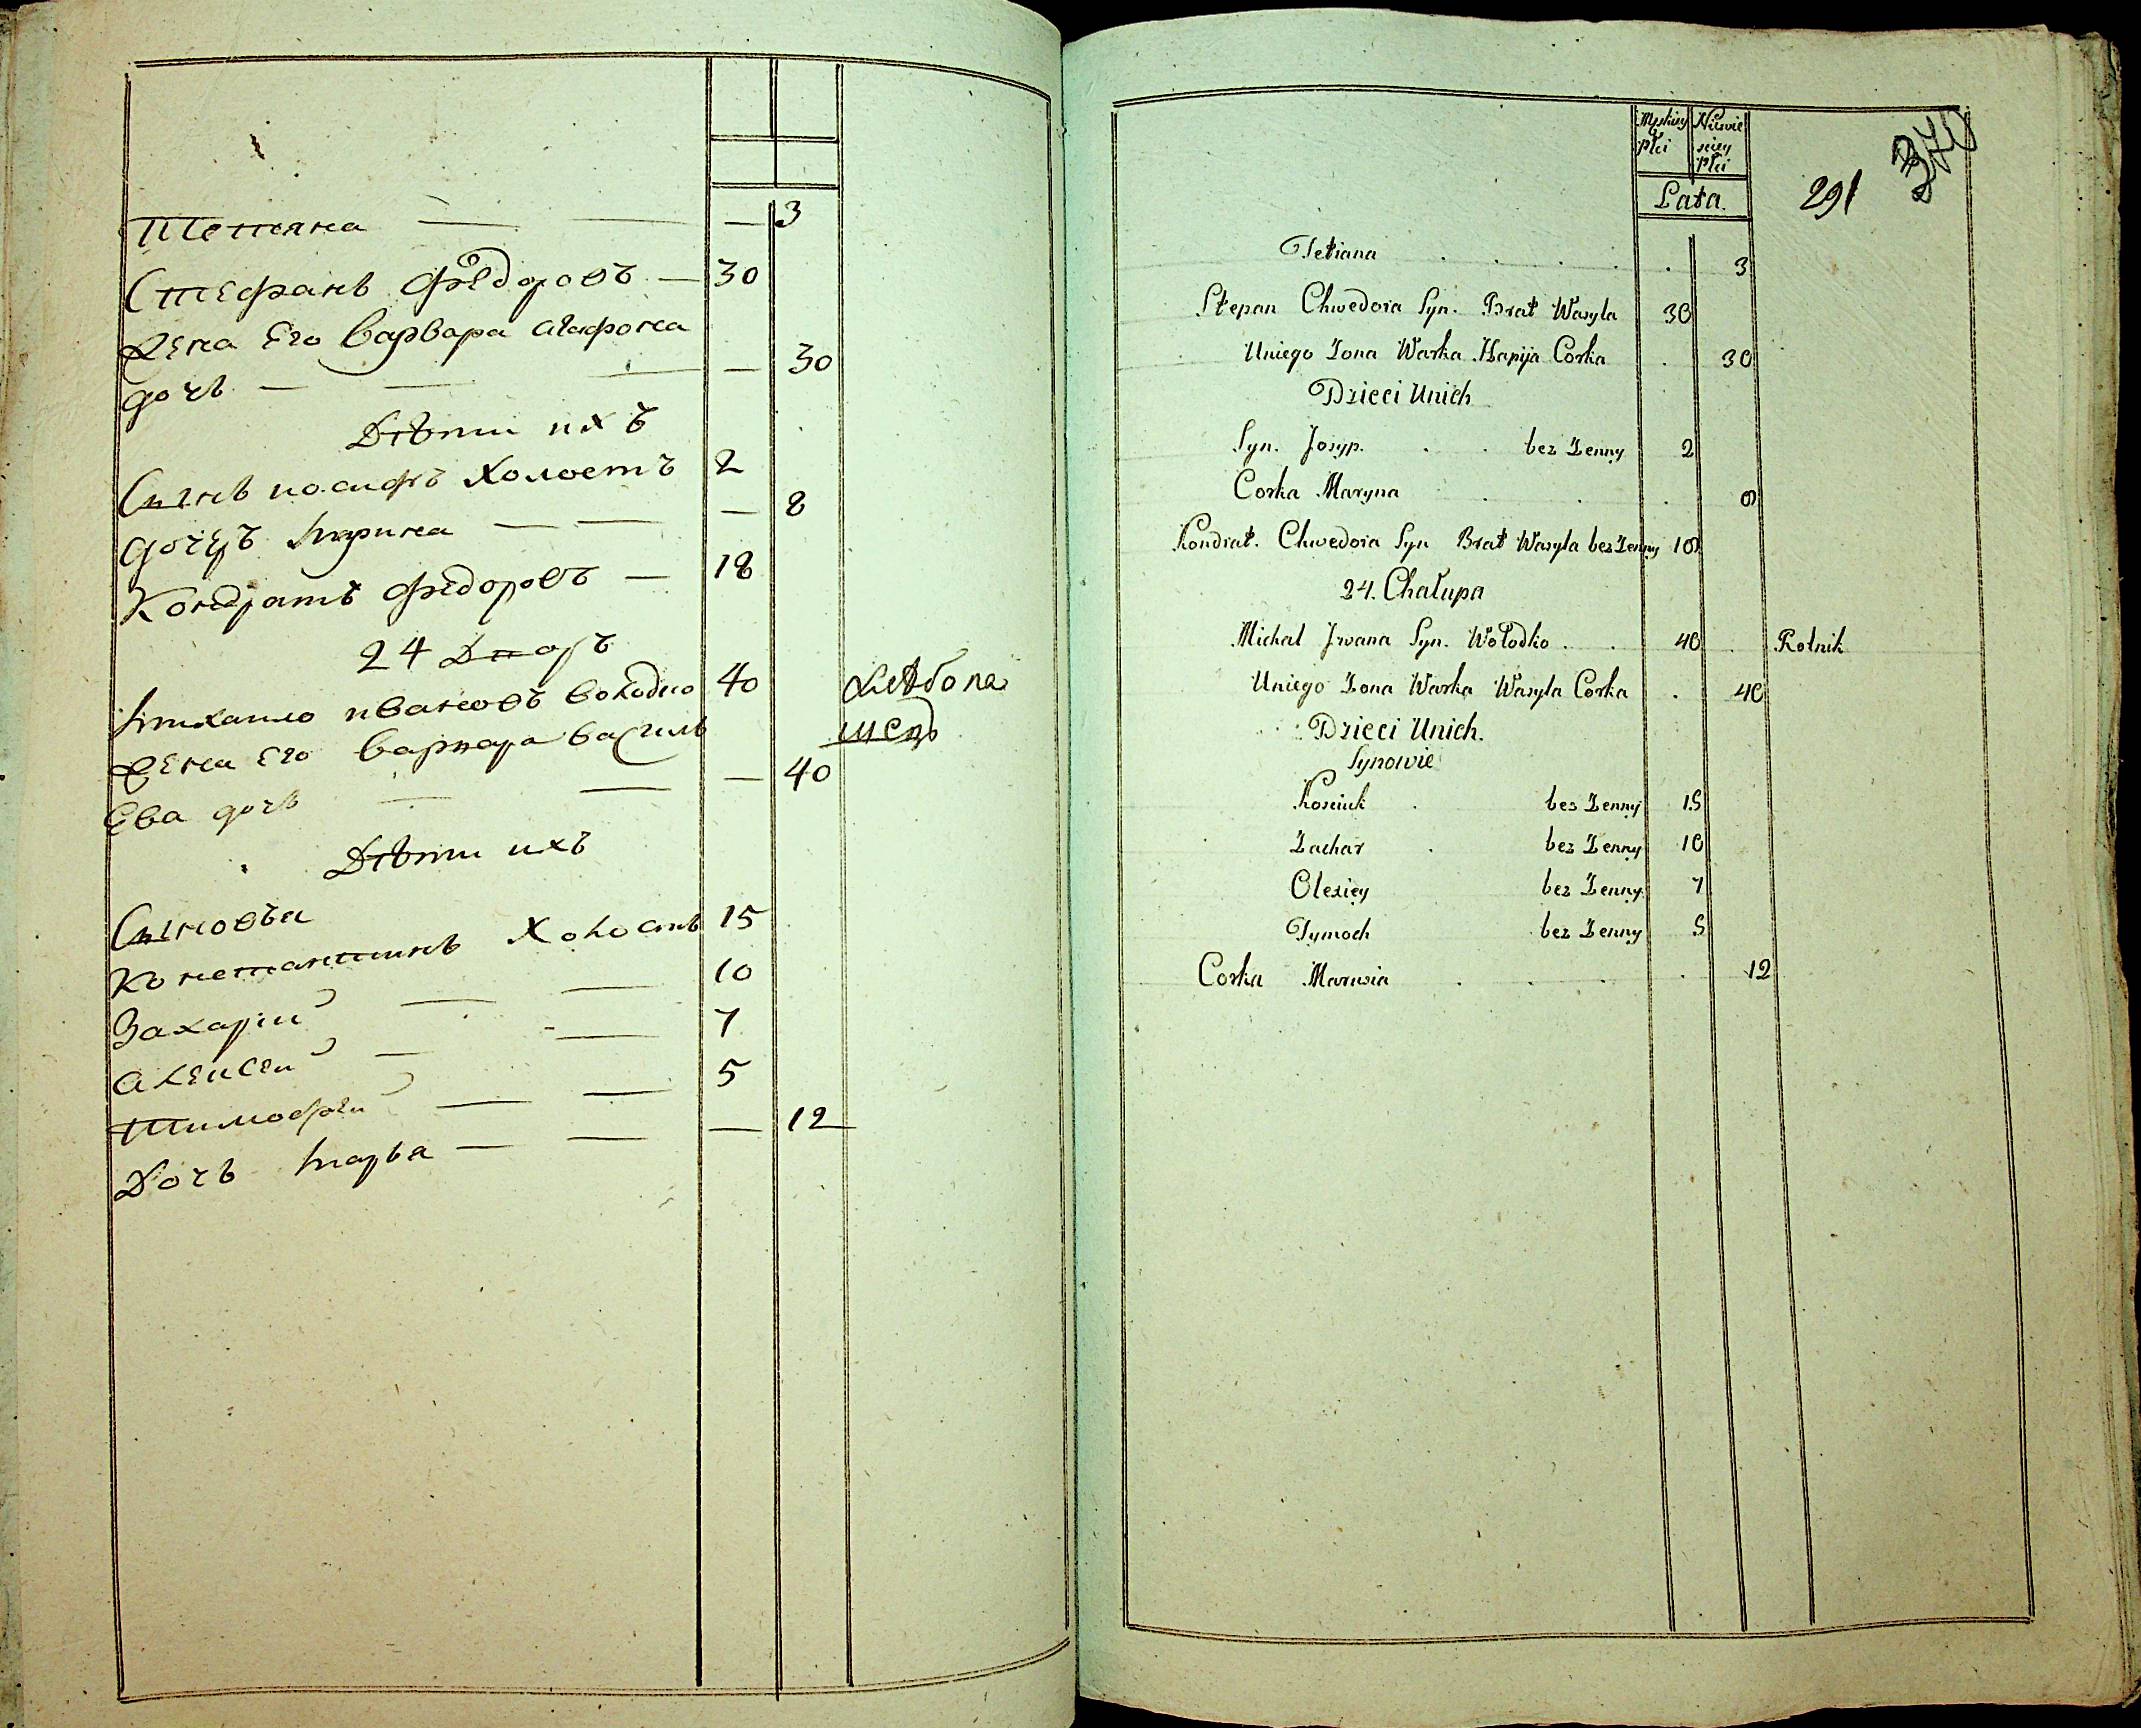 Тетяна — — — 3
Стефанъ Фёдоровъ — 30
Жена Его Варвара Агафона
дочь — — — — 30
Дѣти ихъ
Сынъ иосифъ Холостъ 2
дочеръ Марина — — — 8
Кондратъ Фёдоровъ — 18
24 Дворъ
Михаило ивановъ володко 40 Хлѣбопа
Жена Его Варвара Василь шец
Ева дочь — — — 40
Дѣти ихъ
Сыновья
Константинъ Холостъ 15
Захарий — — 10
Алексей — — 7
Тимофей — — 5
Дочь Марья — — — 12
Męskiey Płci Niewie sciey Płci
Lata.
291 370
Tetiana . . . . . 3
Stepan Chwedora Syn. Brat Wasyla 30
Uniego Zona Warka Hapija Corka . 30
Dzieci Unich
Syn. Josyp. . . bez Zenny 2
Corka Maryna . . . 8
Kondrat. Chwedora Syn Brat Wasyla bez Zenny 18
24. Chałupa
Michal Jwana Syn. Wołodko . . 40 . Rolnik
Uniego Zona Warka Wasyla Corka . 40
Dzieci Unich.
Synowie
Kosciuk . bez Zenny 15
Zachar . bez Zenny 10
Olexiey bez Zenny. 7
Tymoch bez Zenny 5
Corka Marusia . . . . 12